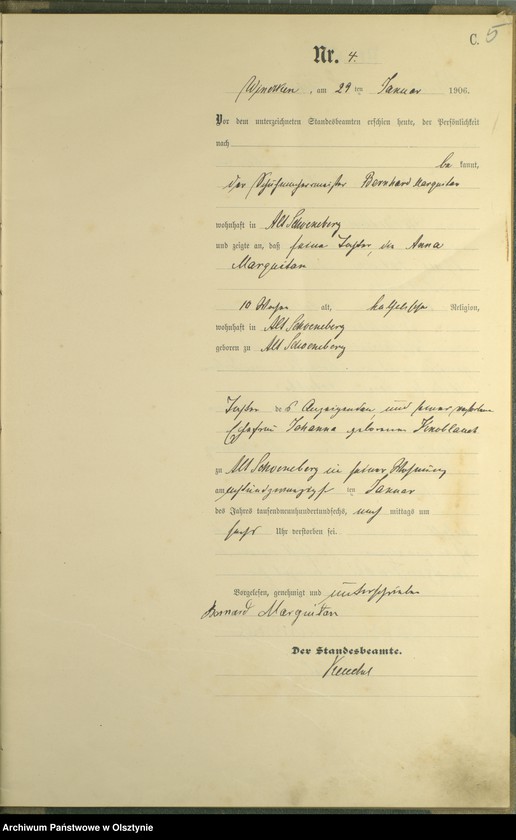 C. 5
Nr. 4.
am 29 ten Januar 1906.
Vor dem unterzeichneten Standesbeamten erschien heute, der Persönlichkeit
nach
be kannt,
der Schuhmachermeister Bernhard Marquitan
wohnhaft in Alt Schoeneberg
und zeigte an, daß seine Tochter, die Anna
Marquitan
10 Wochen alt, katholischer Religion,
wohnhaft in Alt Schoeneberg
geboren zu Alt Schoeneberg
Tochter des Anzeigenden, und seiner
Ehefrau Johanna geborenen Knoblauch
zu Alt Schoeneberg in seiner Wohnung
am achtundzwanzigsten ten Januar
des Jahres tausendneunhundertundsechs, nach mittags um
sechs Uhr verstorben sei.
Vorgelesen, genehmigt und unterschrieben
Bernard Marquitan
Der Standesbeamte.
Archiwum Państwowe w Olsztynie